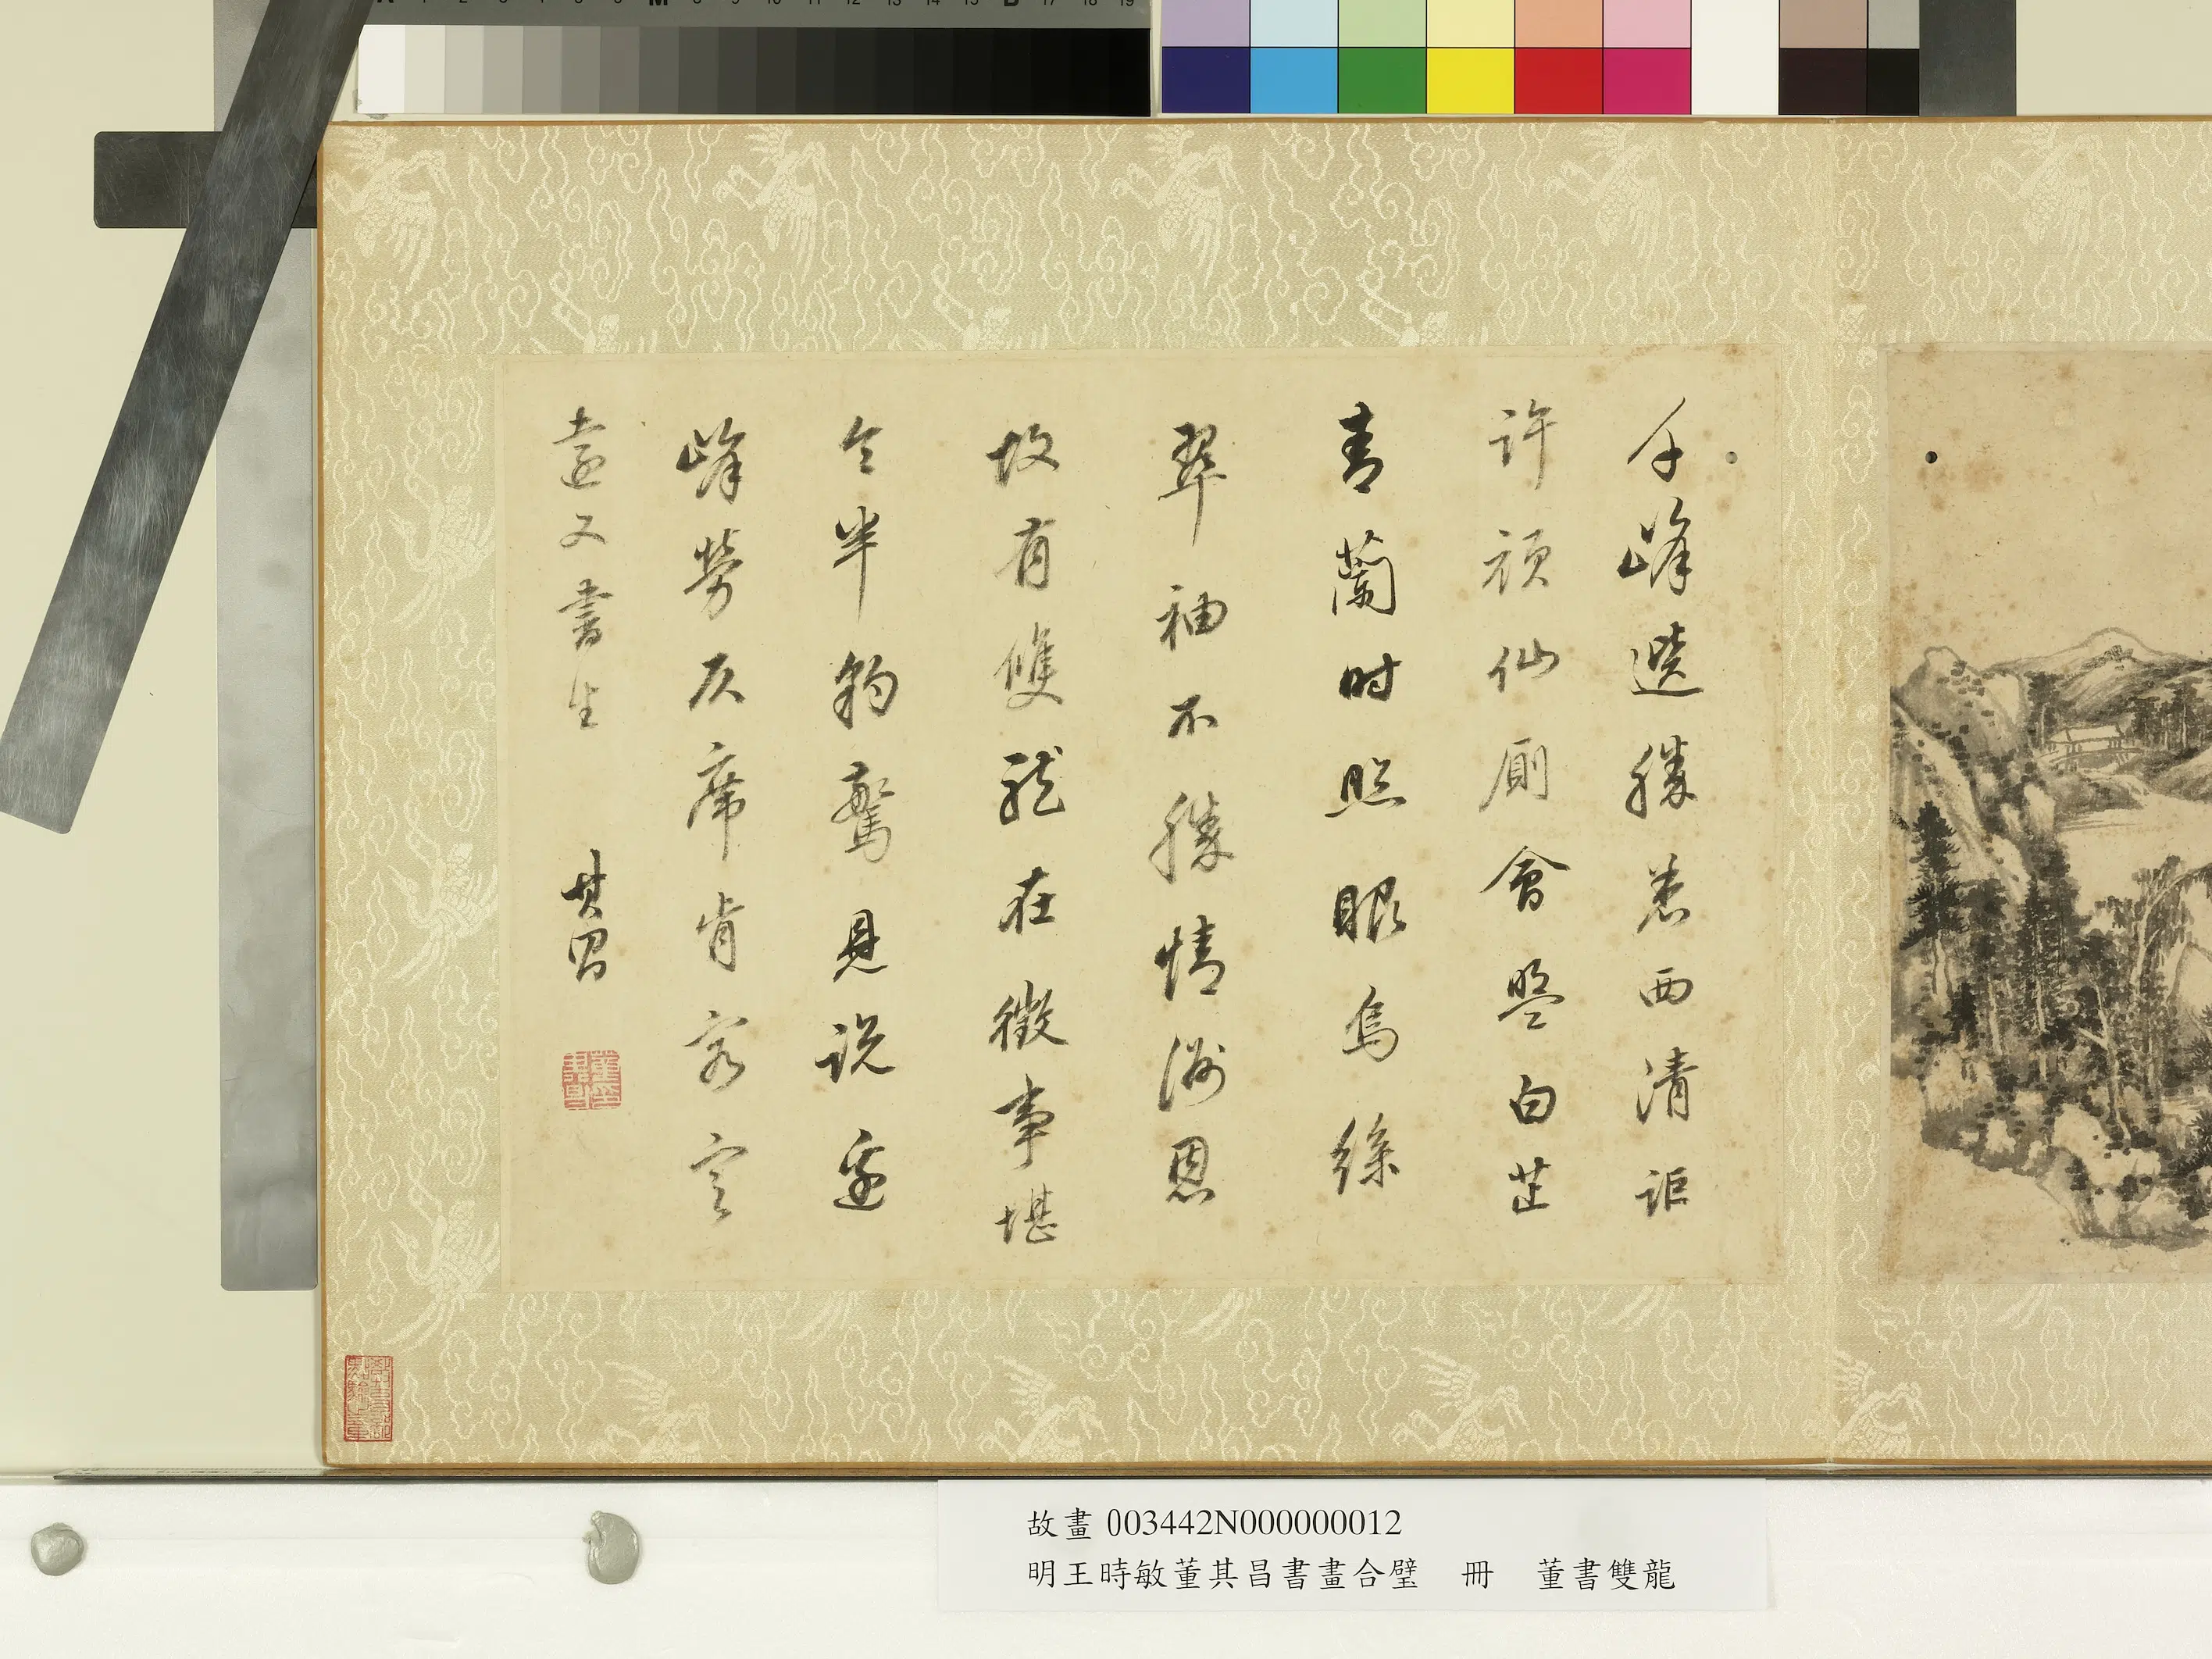 千峰選勝悉西清詎
許頑仙廁會盟白芷
青蘭時照眼烏絲
翠袖不勝情酬恩
故有雙龍在徵事堪
令半豹驚見說邊
峰勞仄席肯容定
遠又書生　其昌
故畫 003442N000000012
明王時敏董其昌書畫合璧　冊　董書雙龍